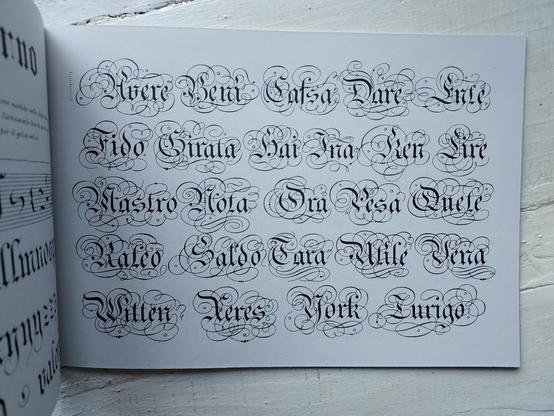 erno
Avere Beni Cassa Dare Ente
Fido Girata Hai Ina Ken Lire
Mastro Nota Ora Pesa Quete
Rateo Saldo Tara Utile Vena
Witten Xeres York Zurigo